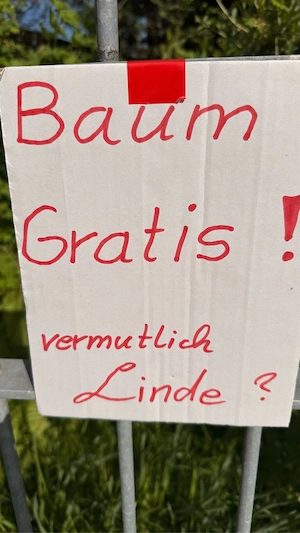 Baum
Gratis !
vermutlich
Linde ?